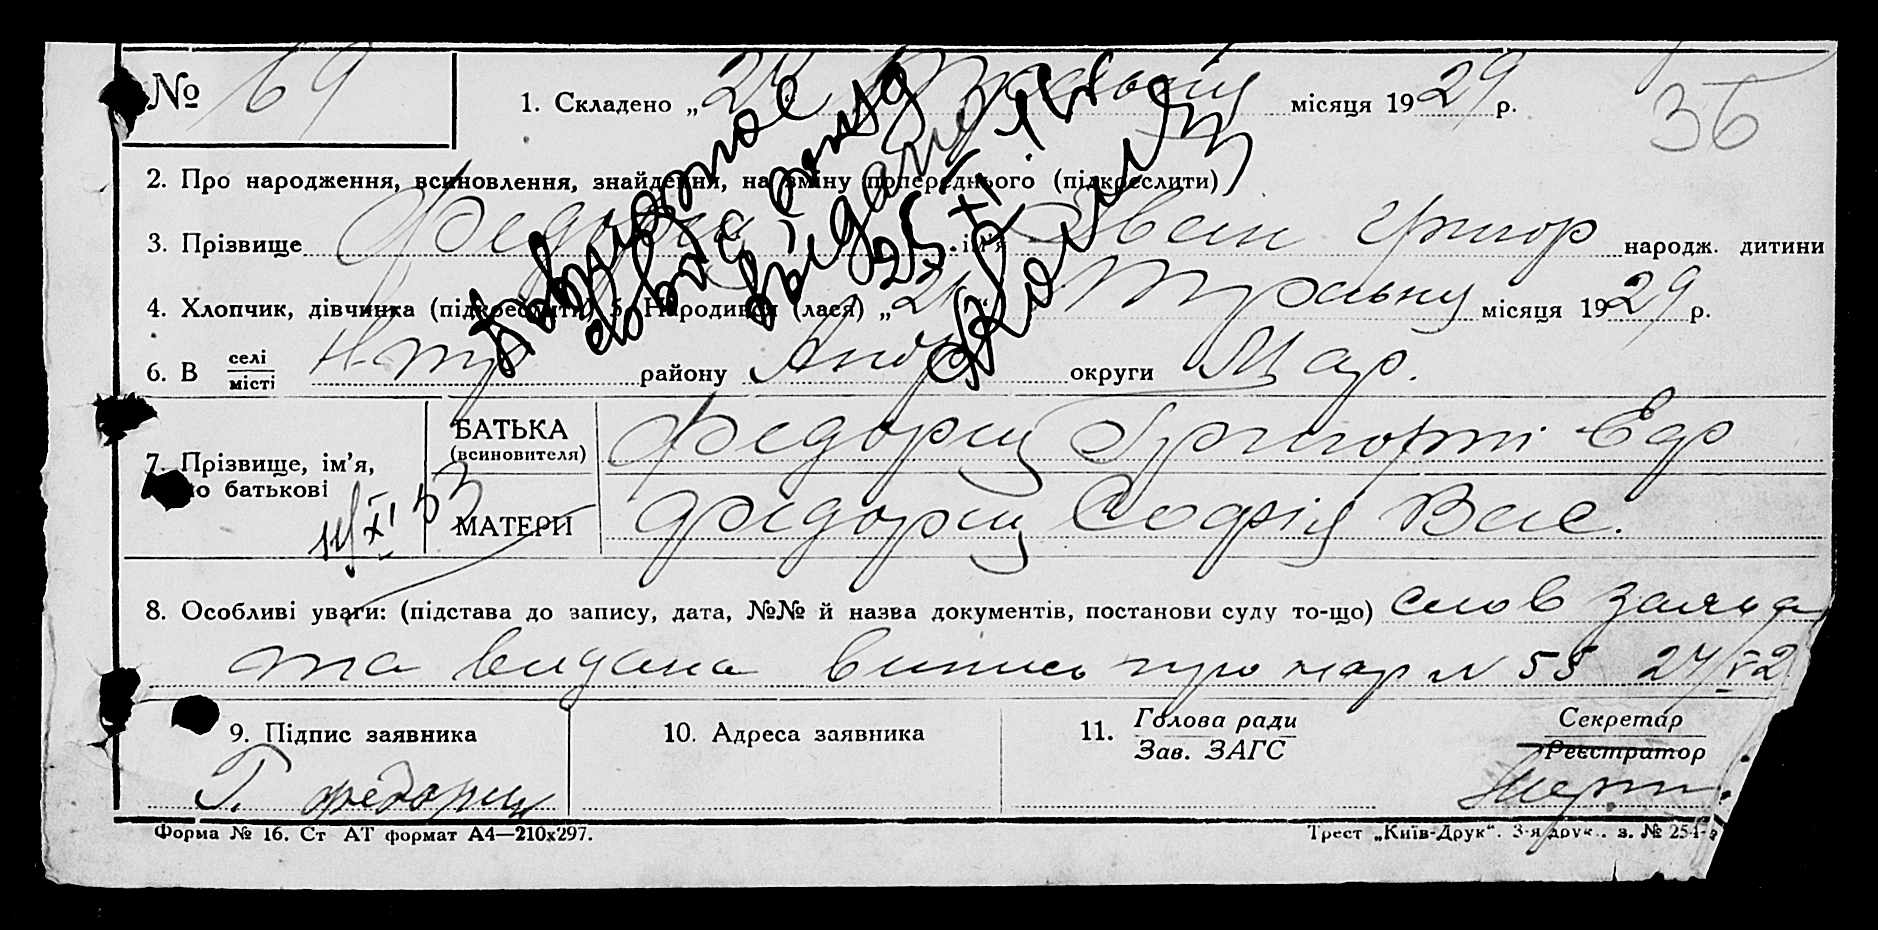 № 69
1. Складено „24" Травьня місяця 1929 р.
36
2. Про народження, всиновлення, знайдення, на зміну попереднього (підкреслити)
3. Прізвище Федорец ім'я Іван Григор народж. дитини
4. Хлопчик, дівчинка (підкреслити) 5. Народився (лася) „2 " Травьня місяця 1929 р.
6. В селі/місті району Андр округи Мар.
7. Прізвище, ім'я, по батькові
БАТЬКА (всиновителя) Федорец Григорій
МАТЕРИ Федорец Софія Вас.
14/XI 53
Повторное
свид
выдано
25 XI
8. Особливі уваги: (підстава до запису, дата, №№ й назва документів, постанови суду то-що) слов заява
та видана випись про нар N 55 24/V 2
9. Підпис заявника
Г. Федорец
10. Адреса заявника
11. Голова ради
Зав. ЗАГС
Секретар
Реєстратор
Форма № 16. Ст АТ формат А4—210х297.
Трест „Київ-Друк". 3-я друк.. з. № 254-